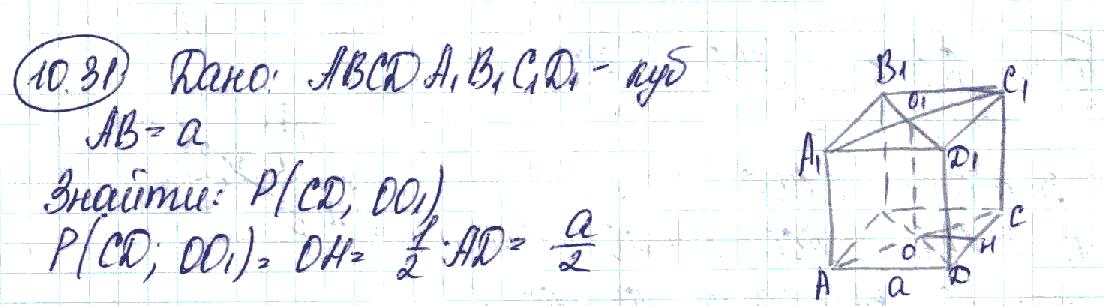 10.31 Дано: ABCDA₁B₁C₁D₁ - куб
AB = a
Знайти: P(CD; OO₁)
P(CD; OO₁) = OH = 1/2 · AD = a/2
B₁ O₁ C₁
A₁ D₁
O H C
A a D